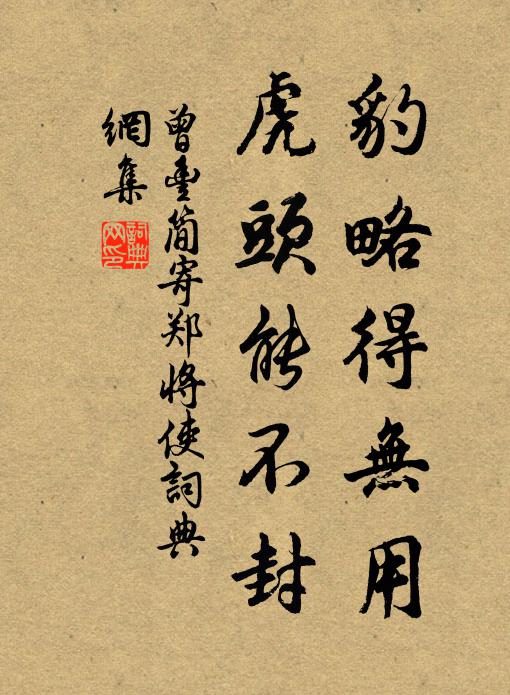 豹略得無用
虎頭能不封
曾豐簡寄郑將使詞典
網集
詞典
网印